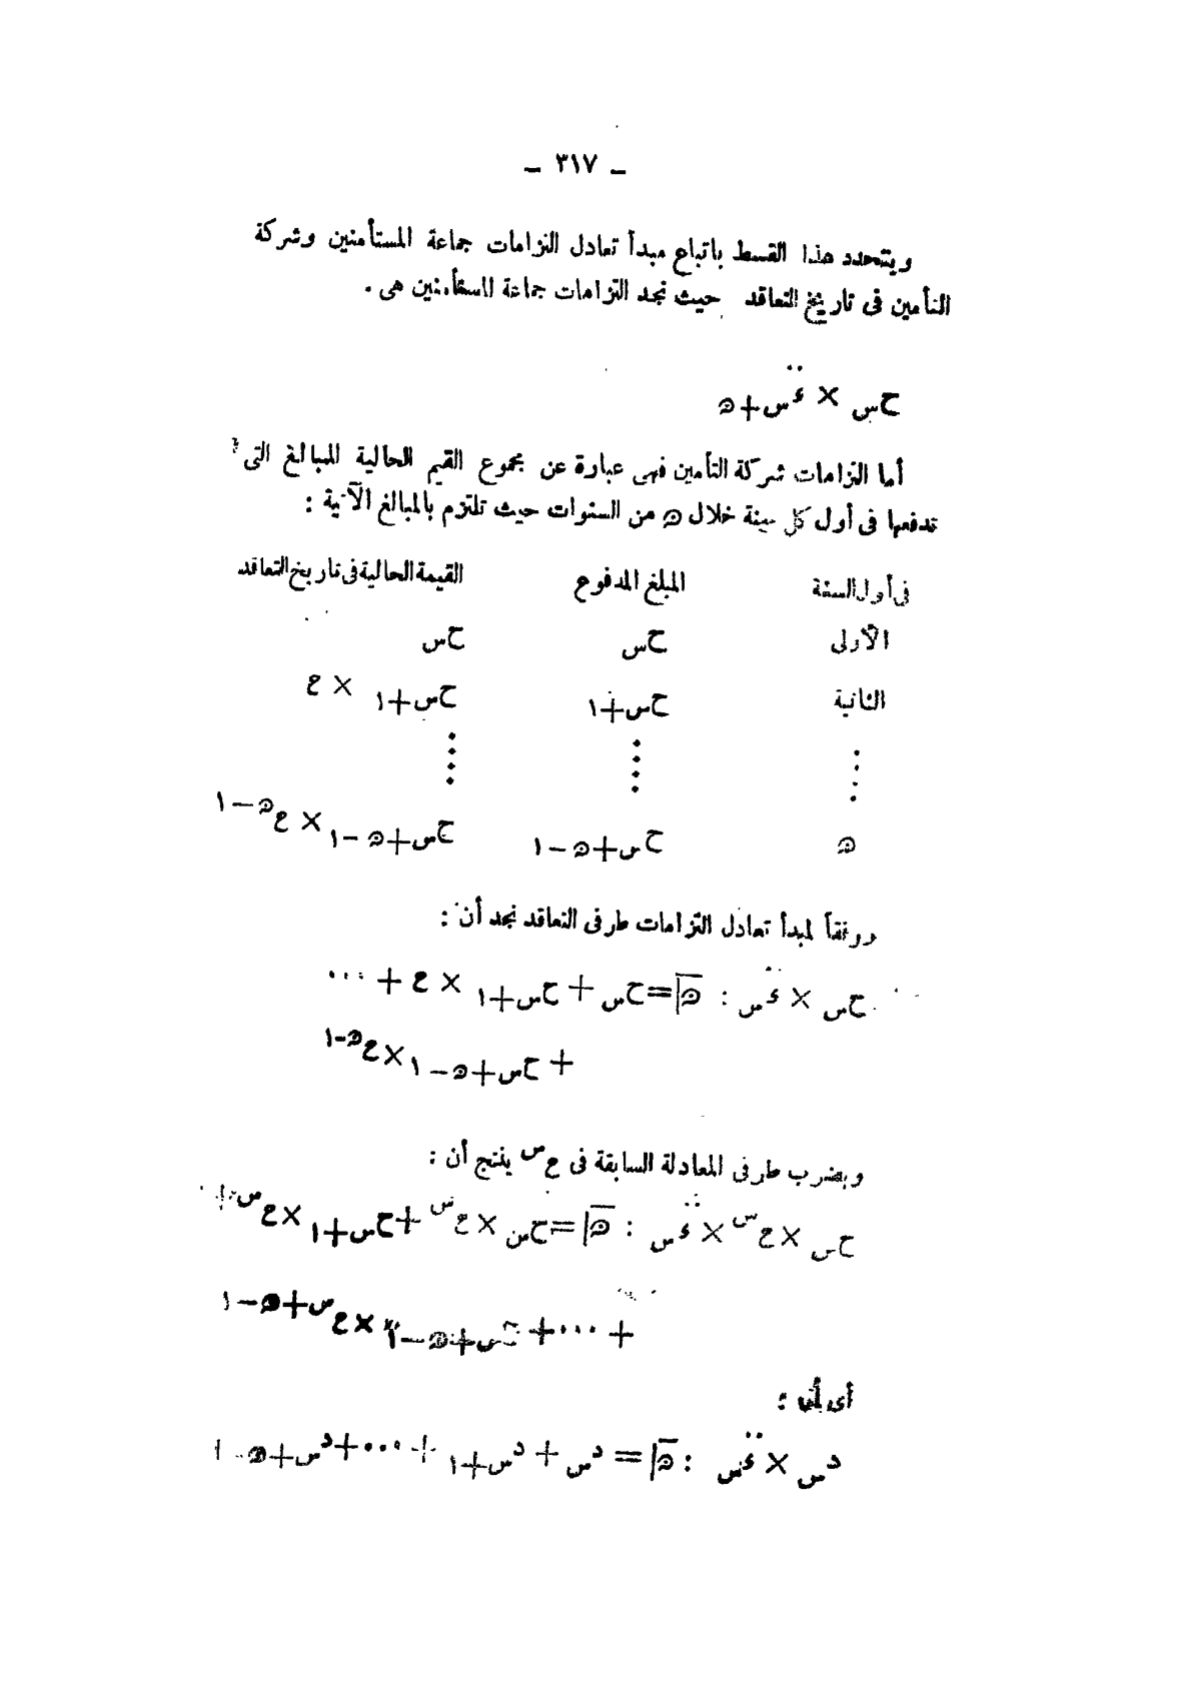 ـ ٣١٧ ـ
ويتحدد هذا القسط باتباع مبدأ تعادل التزامات جماعة المستأمنين وشركة
التأمين فى تاريخ التعاقد حيث نجد التزامات جماعة المستأمنين هى .
ح س × ء̈ س+ں
أما التزامات شركة التأمين فهى عبارة عن مجموع القيم الحالية للمبالغ التى
تدفعها فى أول كل سنة خلال ں من السنوات حيث تلتزم بالمبالغ الآتية :
فى أول السنة المبلغ المدفوع القيمة الحالية فى تاريخ التعاقد
الأولى ح س ح س
الثانية ح س+١ ح س+١ × ع
ں ح س+ں−١ ح س+ں−١ × ع ں−١
ووفقاً لمبدأ تعادل التزامات طرفى التعاقد نجد أن :
ح س × ء̈ س : ں = ح س + ح س+١ × ع + ...
+ ح س+ں−١ × ع ں−١
وبضرب طرفى المعادلة السابقة فى ع س ينتج أن :
ح س × ع س × ء̈ س : ں = ح س × ع س + ح س+١ × ع س+١
+ ... + ح س+ں−١ × ع س+ں−١
أى أن :
د س × ء̈ س : ں = د س + د س+١ + ... + د س+ں−١